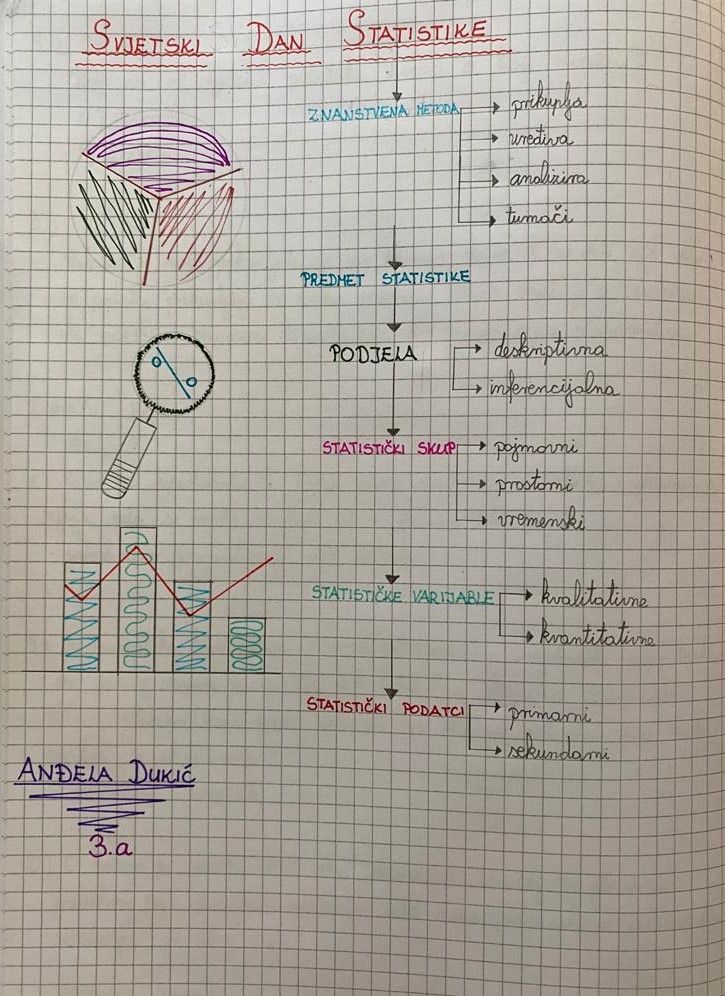 SVJETSKI DAN STATISTIKE
ZNANSTVENA METODA
prikuplja
uređiva
analizira
tumači
PREDMET STATISTIKE
PODJELA
deskriptivna
inferencijalna
%
STATISTIČKI SKUP
pojmovni
prostorni
vremenski
STATISTIČKE VARIJABLE
kvalitativne
kvantitativne
STATISTIČKI PODATCI
primarni
sekundarni
ANĐELA DUKIĆ
3.a